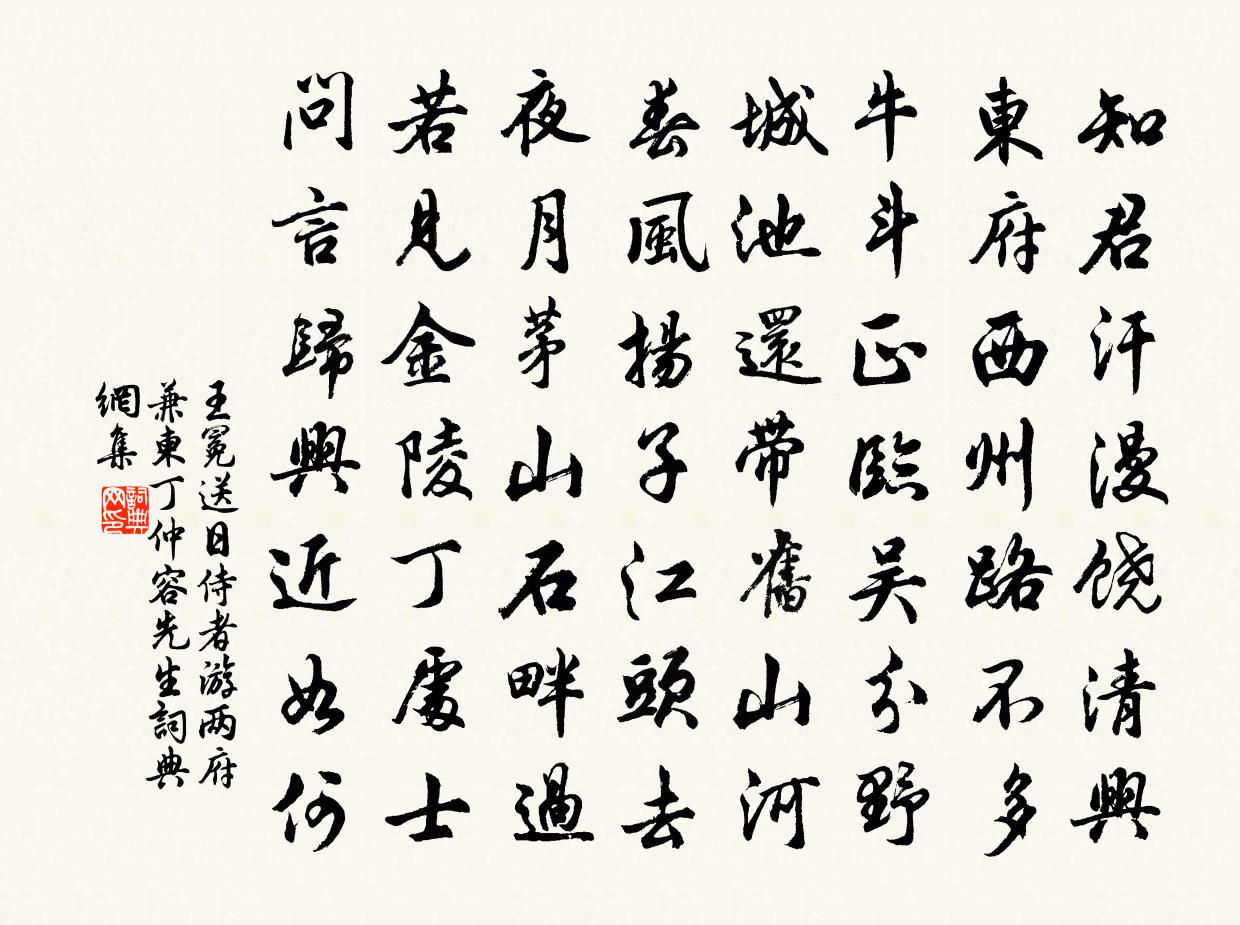 知君汗漫饶清興
東府西州路不多
牛斗正臨吴分野
城池還帶舊山河
春風揚子江頭去
夜月茅山石畔過
若見金陵丁處士
問言歸興近如何
王冕送日侍者游两府
兼東丁仲容先生詞典
網集
詞典网印